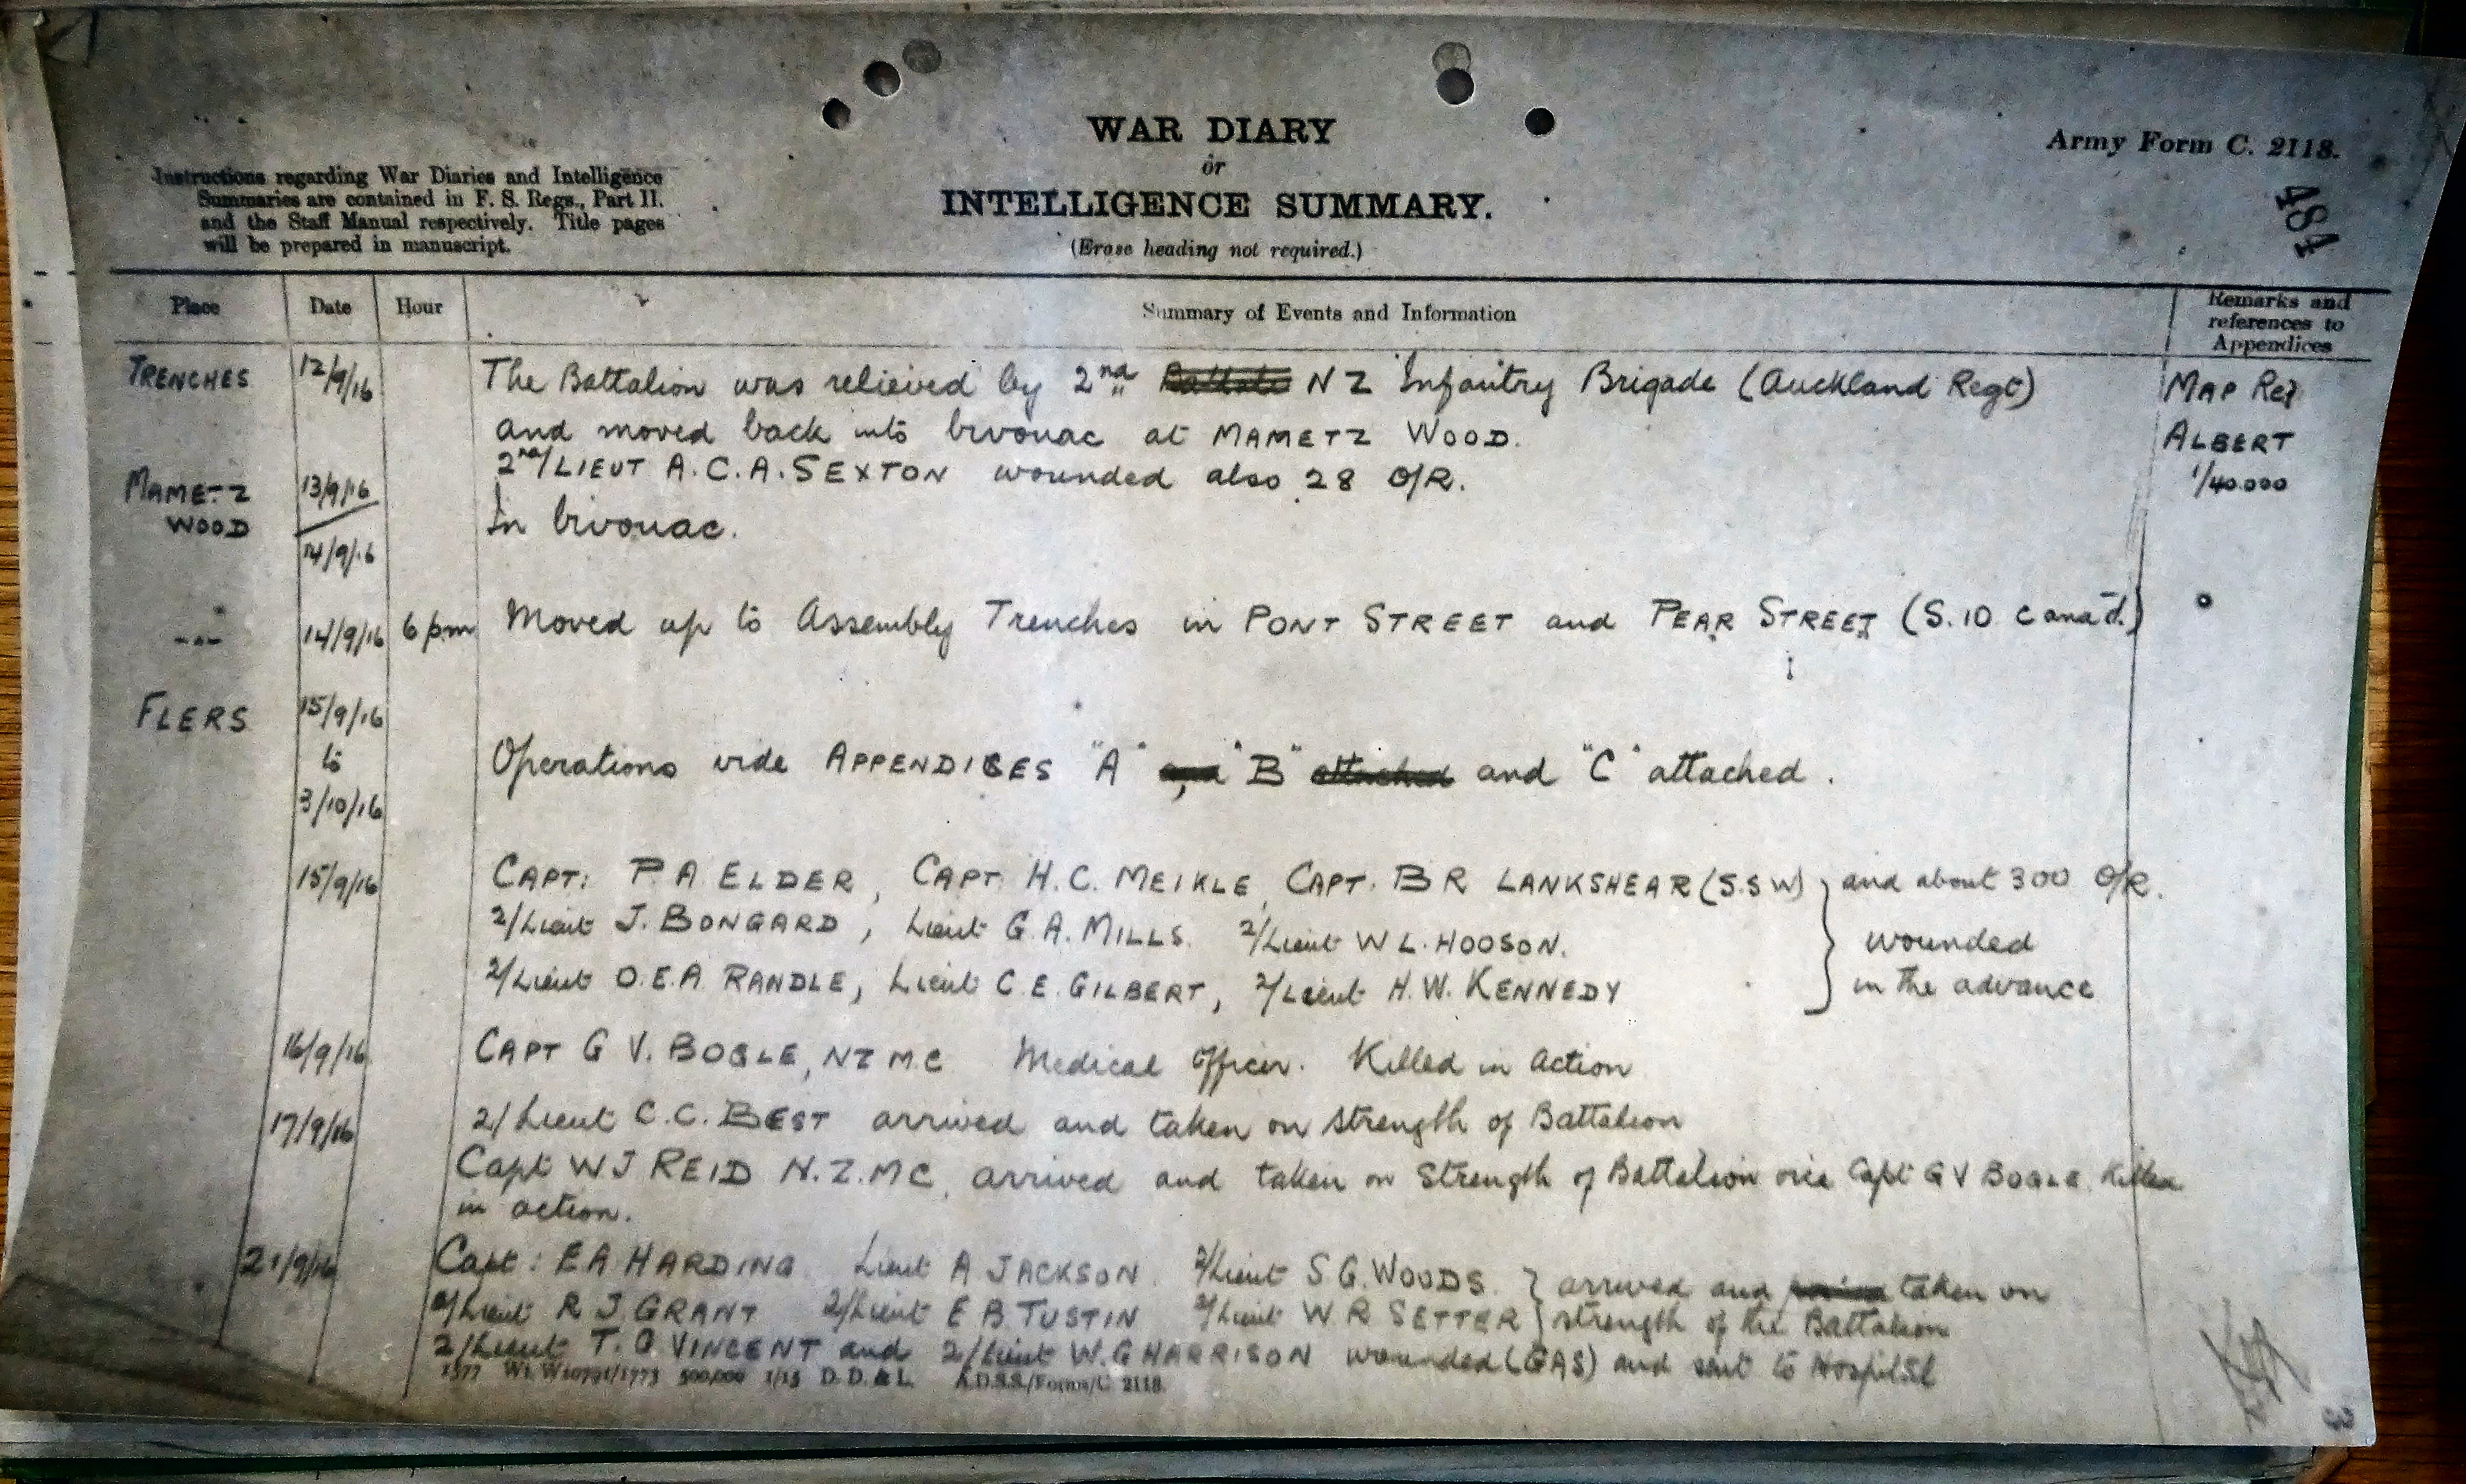 WAR DIARY
or
INTELLIGENCE SUMMARY.
(Erase heading not required.)
Army Form C. 2118.
484
Instructions regarding War Diaries and Intelligence
Summaries are contained in F. S. Regs., Part II.
and the Staff Manual respectively. Title pages
will be prepared in manuscript.
Place Date Hour Summary of Events and Information Remarks and references to Appendices
TRENCHES 12/9/16 The Battalion was relieved by 2nd NZ Infantry Brigade (Auckland Regt) MAP Ref
and moved back into bivouac at MAMETZ WOOD. ALBERT
2nd/LIEUT A.C.A. SEXTON wounded also 28 O/R. 1/40.000
MAMETZ WOOD 13/9/16 14/9/16 In bivouac.
-"- 14/9/16 6 pm Moved up to Assembly Trenches in PONT STREET and PEAR STREET (S.10 c and d.)
FLERS 15/9/16 to 3/10/16 Operations vide APPENDICES "A", "B" and "C" attached.
15/9/16 CAPT: P A ELDER, CAPT. H.C. MEIKLE, CAPT. B R LANKSHEAR (S.S W) and about 300 O/R.
2/Lieut J. BONGARD, Lieut G.A. MILLS. 2/Lieut W L. HOOSON. wounded
2/Lieut O.E.A RANDLE, Lieut C.E. GILBERT, 2/Lieut H.W. KENNEDY in the advance
16/9/16 CAPT G V. BOGLE, NZ M.C Medical Officer. Killed in Action
17/9/16 2/Lieut C.C. BEST arrived and taken on strength of Battalion
Capt W J REID N.Z.MC, arrived and taken on Strength of Battalion vice Capt G V BOGLE Killed
in action.
21/9/16 Capt: E A HARDING Lieut A JACKSON. 2/Lieut S G. WOODS. arrived and taken on
2/Lieut R J. GRANT 2/Lieut E B. TUSTIN 2/Lieut W R SETTER strength of the Battalion
2/Lieut T. G. VINCENT and 2/Lieut W. G HARRISON wounded (GAS) and sent to Hospital
1577 Wt. W10791/1773 500,000 1/15 D. D. & L. A.D.S.S./Forms/C. 2118.